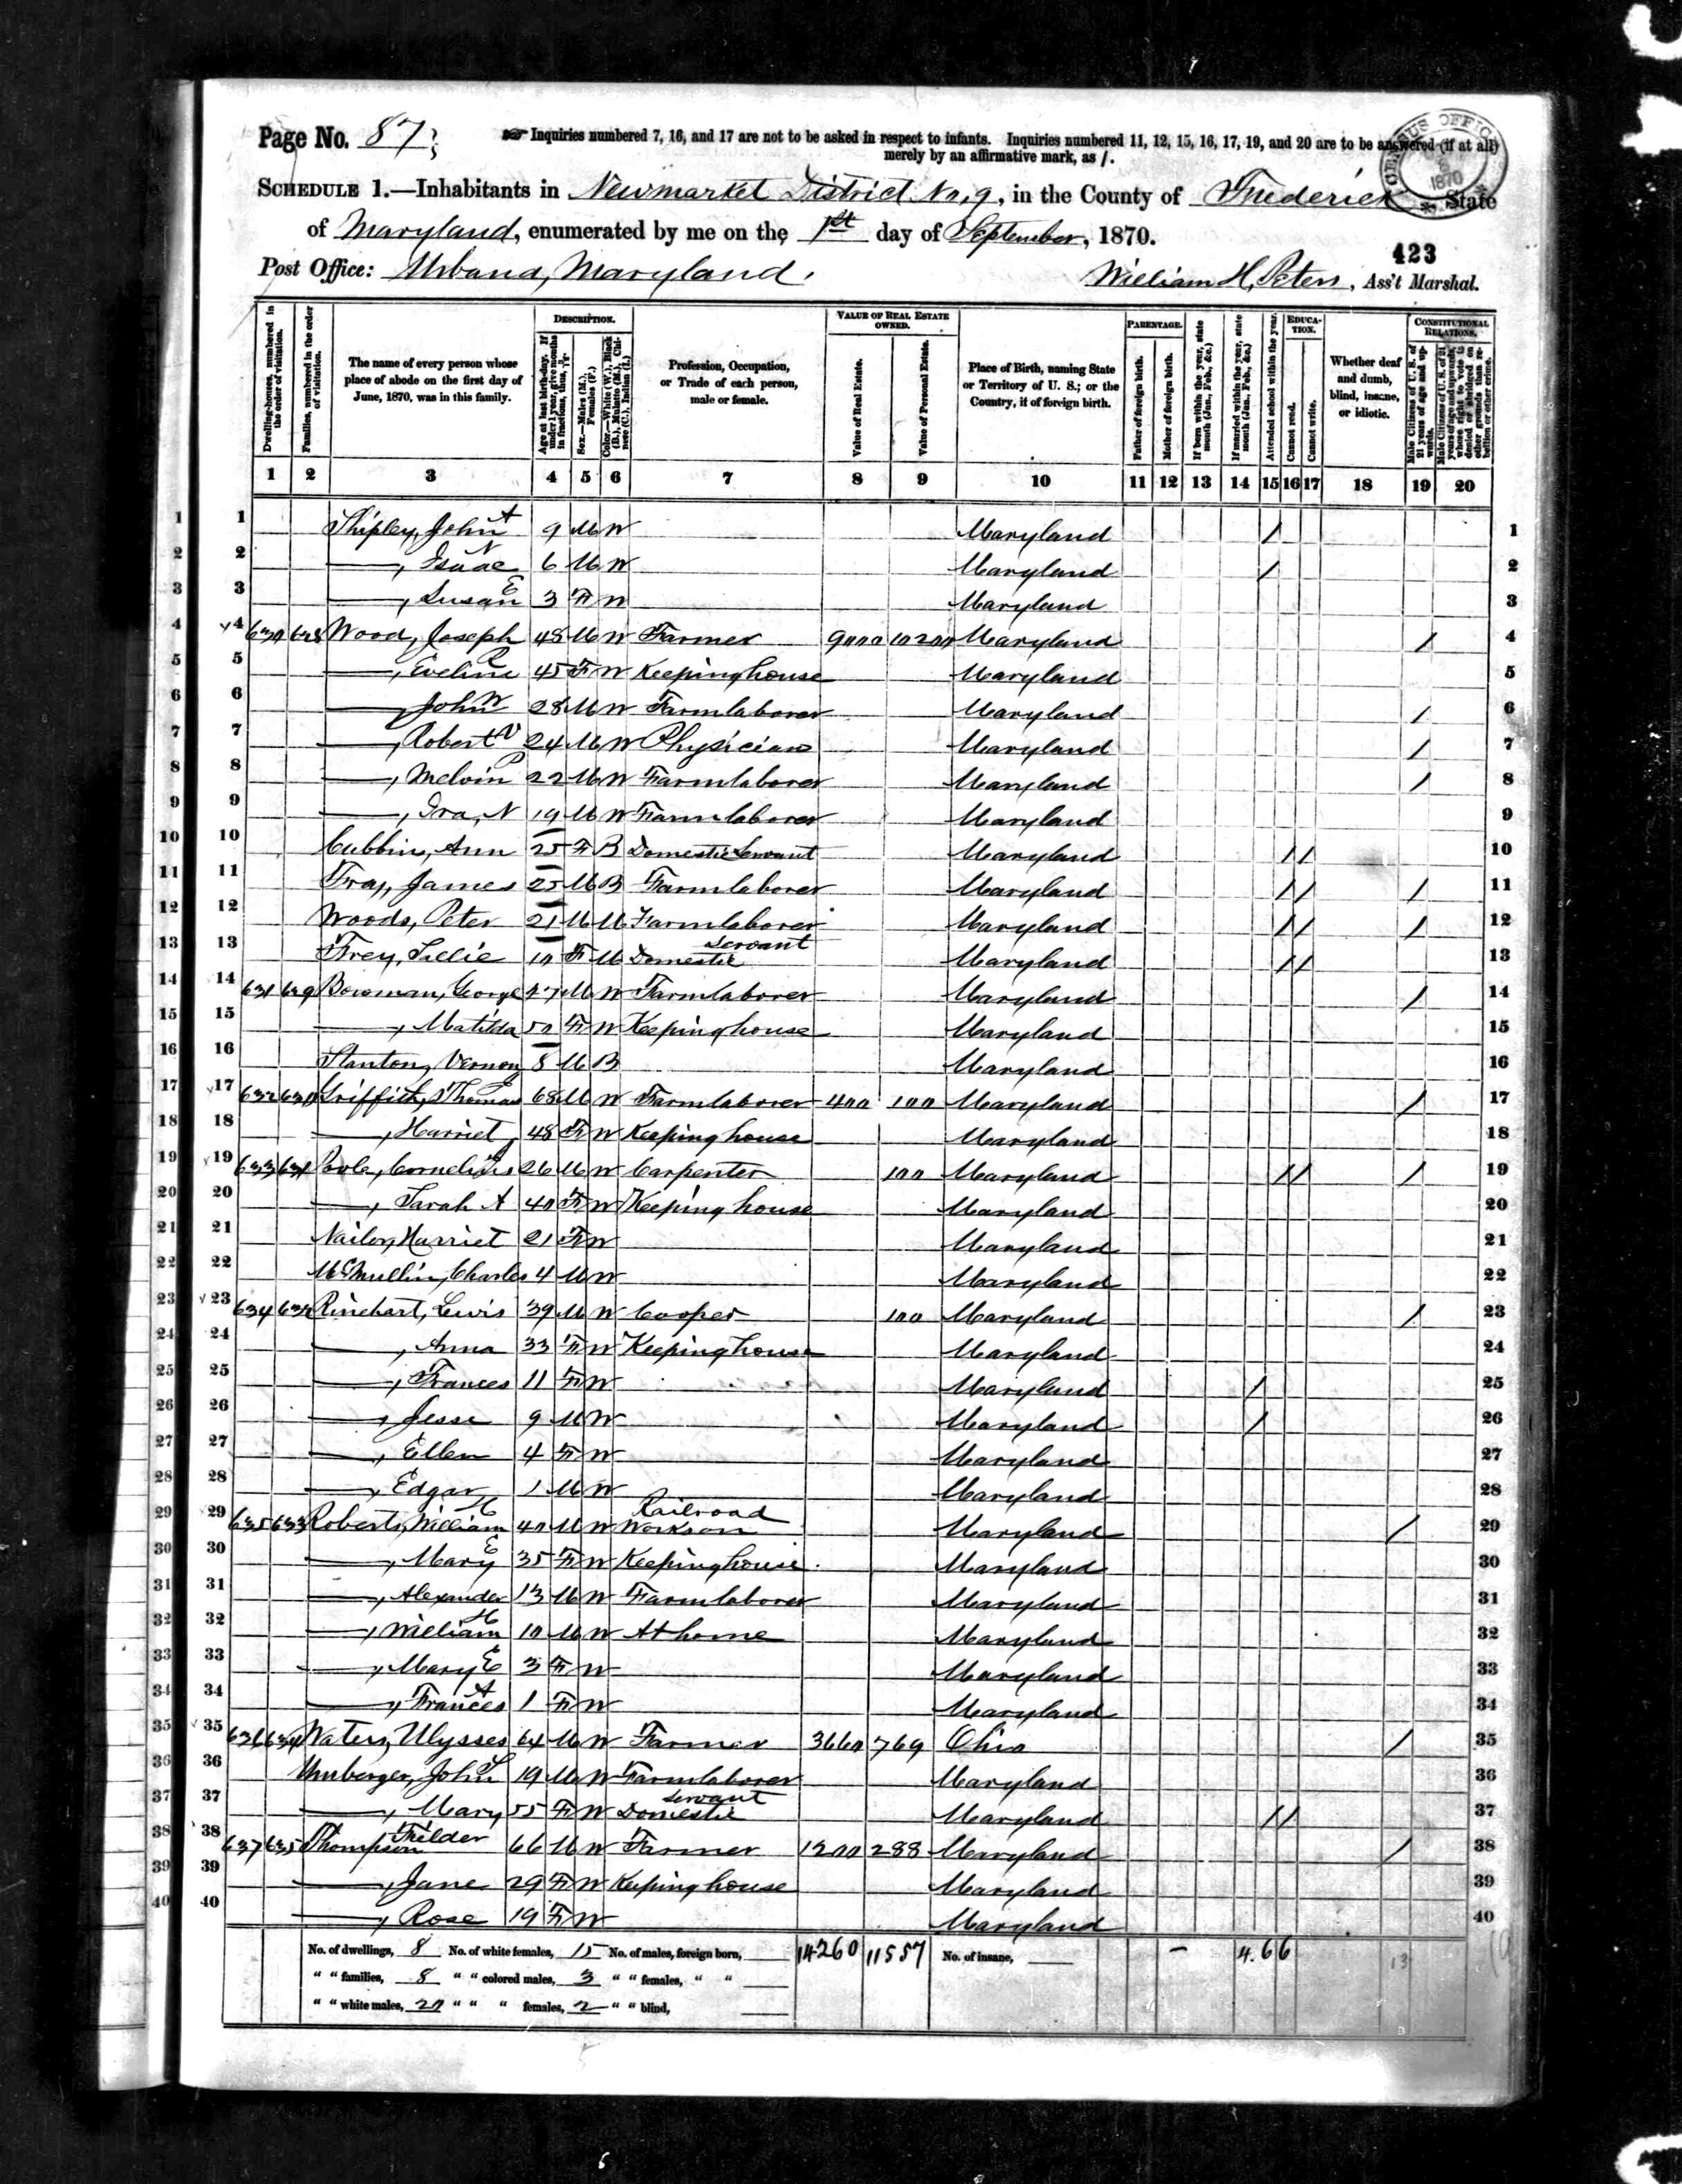 Page No. 87
Inquiries numbered 7, 16, and 17 are not to be asked in respect to infants. Inquiries numbered 11, 12, 15, 16, 17, 19, and 20 are to be answered (if at all) merely by an affirmative mark, as /.
CENSUS OFFICE 1870
SCHEDULE 1.—Inhabitants in Newmarket District No. 9, in the County of Frederick, State
of Maryland, enumerated by me on the 1st day of September, 1870.
423
Post Office: Urbana, Maryland. William H. Peters, Ass't Marshal.
Dwelling-houses, numbered in the order of visitation.
Families, numbered in the order of visitation.
The name of every person whose place of abode on the first day of June, 1870, was in this family.
DESCRIPTION.
Age at last birth-day. If under 1 year, give months in fractions, thus,
Sex.—Males (M.), Females (F.)
Color.—White (W.), Black (B.), Mulatto (M.), Chinese (C.), Indian (I.)
Profession, Occupation, or Trade of each person, male or female.
VALUE OF REAL ESTATE OWNED.
Value of Real Estate.
Value of Personal Estate.
Place of Birth, naming State or Territory of U. S.; or the Country, if of foreign birth.
PARENTAGE.
Father of foreign birth.
Mother of foreign birth.
If born within the year, state month (Jan., Feb., &c.)
If married within the year, state month (Jan., Feb., &c.)
Attended school within the year.
EDUCATION.
Cannot read.
Cannot write.
Whether deaf and dumb, blind, insane, or idiotic.
CONSTITUTIONAL RELATIONS.
Male Citizens of U. S. of 21 years of age and upwards.
Male Citizens of U. S. of 21 years of age and upwards, whose right to vote is denied or abridged on other grounds than rebellion or other crime.
1 2 3 4 5 6 7 8 9 10 11 12 13 14 15 16 17 18 19 20
1 1 Shipley, John A 9 M W Maryland / 1
2 2 ——, Isaac N 6 M W Maryland / 2
3 3 ——, Susan E 3 F W Maryland 3
4 4 630 628 Wood, Joseph 48 M W Farmer 9000 10200 Maryland / 4
5 5 ——, Eveline R 45 F W Keeping house Maryland 5
6 6 ——, John W 28 M W Farm laborer Maryland / 6
7 7 ——, Robert V 24 M W Physician Maryland / 7
8 8 ——, Melvin P 22 M W Farm laborer Maryland / 8
9 9 ——, Ira, N 19 M W Farm laborer Maryland 9
10 10 Cubbin, Ann 25 F B Domestic Servant Maryland / / 10
11 11 Fray, James 25 M B Farm laborer Maryland / / / 11
12 12 Woods, Peter 21 M M Farm laborer Maryland / / / 12
13 13 Frey, 10 F M Domestic Servant Maryland / / 13
14 14 631 629 Bowman, George 47 M W Farm laborer Maryland / 14
15 15 ——, Matilda 50 F W Keeping house Maryland 15
16 16 Stanton, Vernon 8 M B Maryland 16
17 17 632 630 Griffith, Thomas 68 M W Farm laborer 400 100 Maryland / 17
18 18 ——, Harriet 48 F W Keeping house Maryland 18
19 19 633 631 Poole, Cornelius 26 M W Carpenter 100 Maryland / / / 19
20 20 ——, Sarah A 40 F W Keeping house Maryland 20
21 21 Nailor, Harriet 21 F W Maryland 21
22 22 McMullin, Charles 4 M W Maryland 22
23 23 634 632 Rinehart, Lewis 39 M W Cooper 100 Maryland / 23
24 24 ——, Anna 33 F W Keeping house Maryland 24
25 25 ——, Frances 11 F W Maryland / 25
26 26 ——, Jesse 9 M W Maryland / 26
27 27 ——, Ellen 4 F W Maryland 27
28 28 ——, Edgar 1 M W Maryland 28
29 29 635 633 Roberts, William H 40 M W Railroad Works on Maryland / 29
30 30 ——, Mary E 35 F W Keeping house Maryland 30
31 31 ——, Alexander 13 M W Farm laborer Maryland 31
32 32 ——, William H 10 M W At home Maryland 32
33 33 ——, Mary E 3 F W Maryland 33
34 34 ——, Frances A 1 F W Maryland 34
35 35 636 634 Waters, Ulysses 64 M W Farmer 3660 769 Ohio / 35
36 36 Umberger, John L 19 M W Farm laborer Maryland 36
37 37 ——, Mary 55 F W Domestic Servant Maryland / / 37
38 38 637 635 Thompson Filder 66 M W Farmer 1200 288 Maryland / 38
39 39 ——, Jane 29 F W Keeping house Maryland 39
40 40 ——, Rose 19 F W Maryland 40
No. of dwellings, 8 No. of white females, 15 No. of males, foreign born, 14260 11557 No. of insane, — 4. 6 6 13
" " families, 8 " " colored males, 3 " " females, " "
" " white males, 20 " " " females, 2 " " blind,